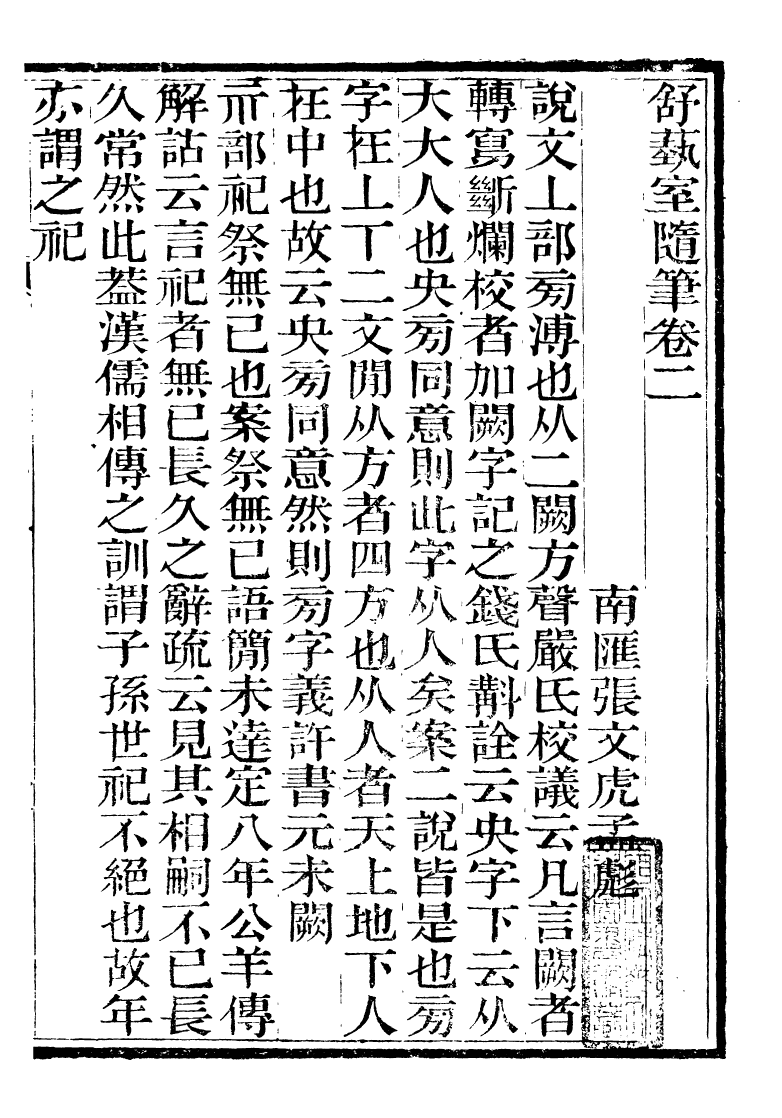 舒蓺室隨筆卷二
南匯張文虎孟彪
說文丄部㫄溥也从二闕方聲嚴氏校議云凡言闕者
轉寫斷爛校者加闕字記之錢氏斠詮云央字下云从
大大人也央㫄同意則此字从人矣案二說皆是也㫄
字在丄丅二文閒从方者四方也从人者天上地下人
在中也故云央㫄同意然則㫄字義許書元未闕
示部祀祭無已也案祭無已語簡未達定八年公羊傳
解詁云言祀者無已長久之辭疏云見其相嗣不已長
久常然此蓋漢儒相傳之訓謂子孫世祀不絕也故年
亦謂之祀